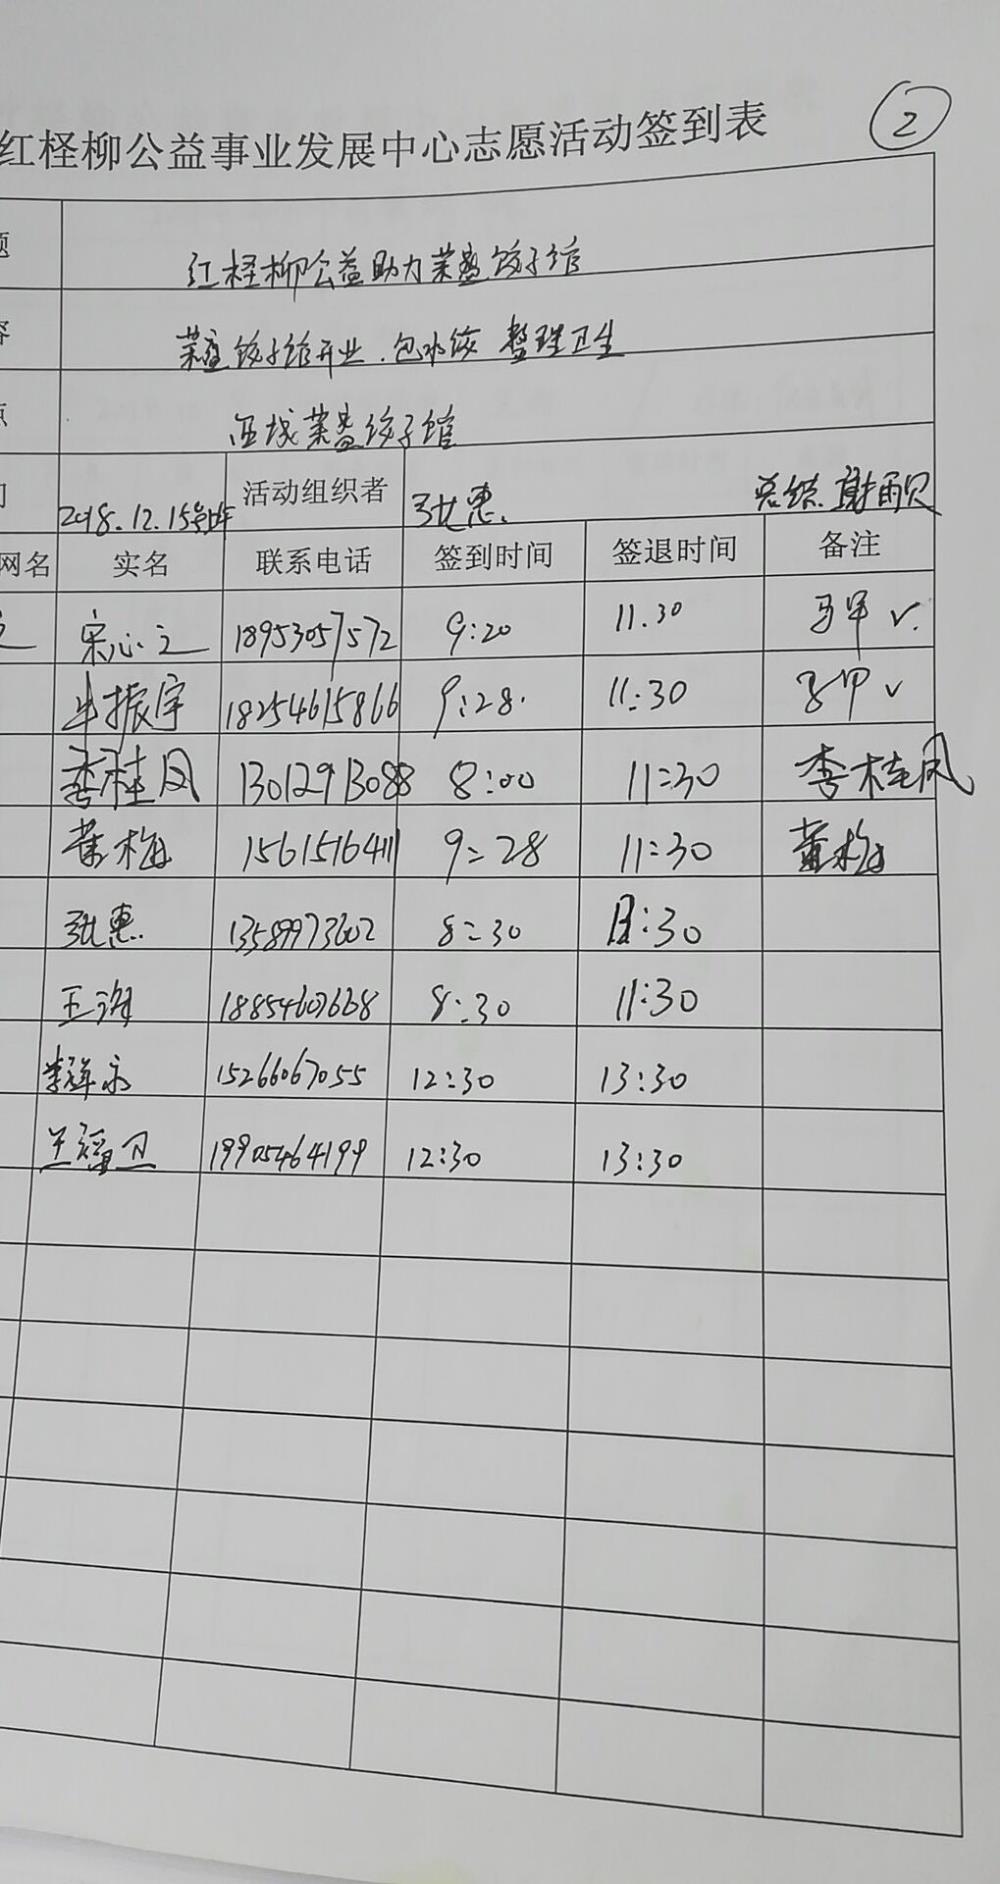 ②
红柽柳公益事业发展中心志愿活动签到表
题 红柽柳公益助力荣盛饺子馆
容 荣盛饺子馆开业.包水饺 整理卫生
点 西城荣盛饺子馆
间 2018.12.15 活动组织者 张惠. 总结.谢丽贝
网名 实名 联系电话 签到时间 签退时间 备注
之 宋心之 18953057572 9:20 11.30 马甲 ✓.
牛振宇 18254615866 9:28. 11:30 马甲 ✓
李桂凤 13012913088 8:00 11:30 李桂凤
黄梅 15615164111 9:28 11:30 黄梅
张惠. 13589973602 8:30 11:30
王海 18854607668 8:30 11:30
李祥永 15266067055 12:30 13:30
兰福卫 19905464199 12:30 13:30